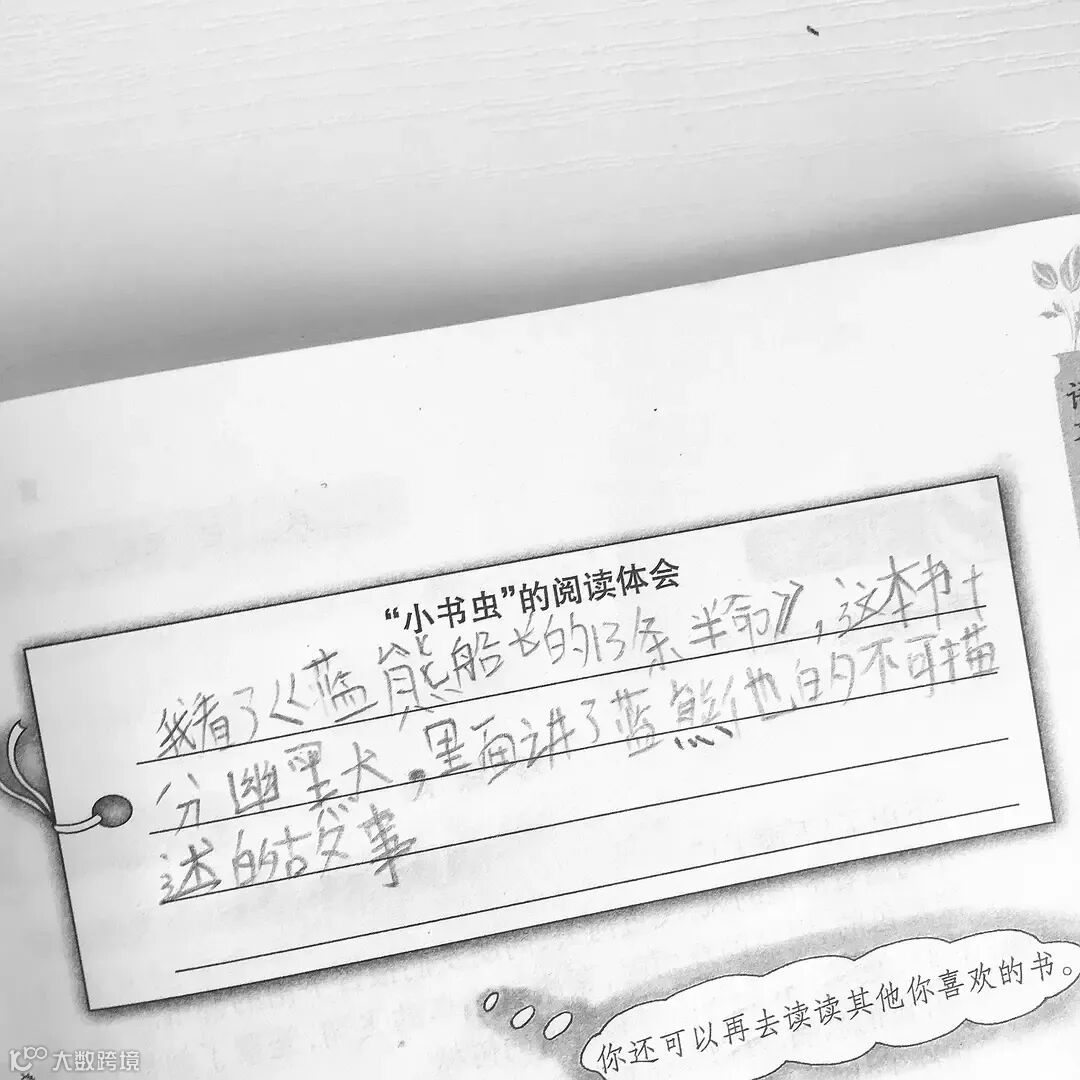 “小书虫”的阅读体会
我看了《蓝熊船长的13条半命》，这本书十
分幽黑犬，里面讲了蓝熊他的不可描
述的故事
你还可以再去读读其他你喜欢的书。
大数跨境